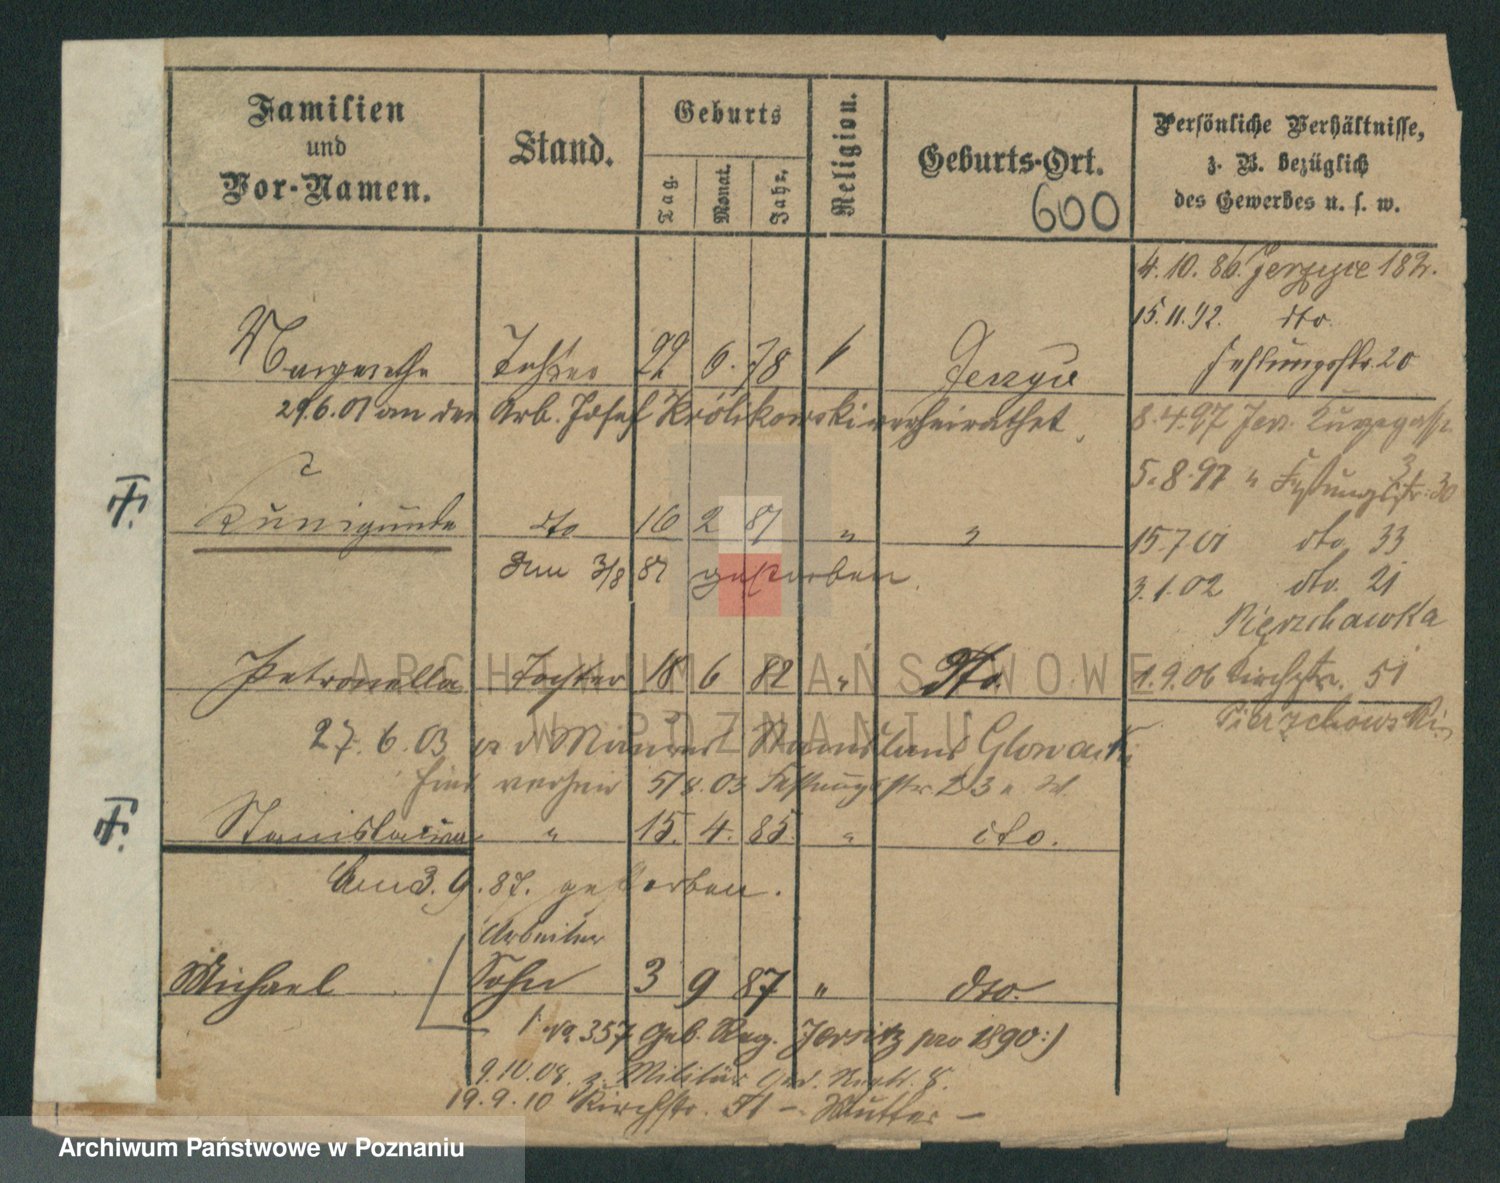 Familien
und
Vor-Namen.
Stand.
Geburts
Tag.
Monat.
Jahr.
Religion.
Geburts-Ort.
600
Persönliche Verhältnisse,
z. B. bezüglich
des Gewerbes u. s. w.
4.10.86. Jerzyce 182.
15.11.92. dto.
Festungsstr. 20
Margarethe Tochter 22 6. 78 Jerzyce
29.6.01 an den Arb. Josef Królikowski verheirathet.
8.4.97 Jer.
5.8.97 " Festungsstr. 30
T.
Kunigunde dto 16 2 81 " "
15 7 01 dto 33
Am 3/8 81 gestorben.
3.1.02 dto. 21
Pierzchawka
Petronella Tochter 18 6 82 " dto.
1.9.06 Kirchstr. 51
Pierzchowski
27.6.03 Glowacki
hier verheir 5/8.03 Festungsstr 23
T.
Stanislawa " 15. 4. 85. " dto.
Am 3.9.87. gestorben.
Arbeiter
Michael Sohn 3 9 87 " dto.
No 357 Geb. Reg. Jersitz pro 1890:)
9.10.08. z. Militär
19.9.10 Kirchstr. 51 - Mutter -
ARCHIWUM PAŃSTWOWE
W POZNANIU
Archiwum Państwowe w Poznaniu